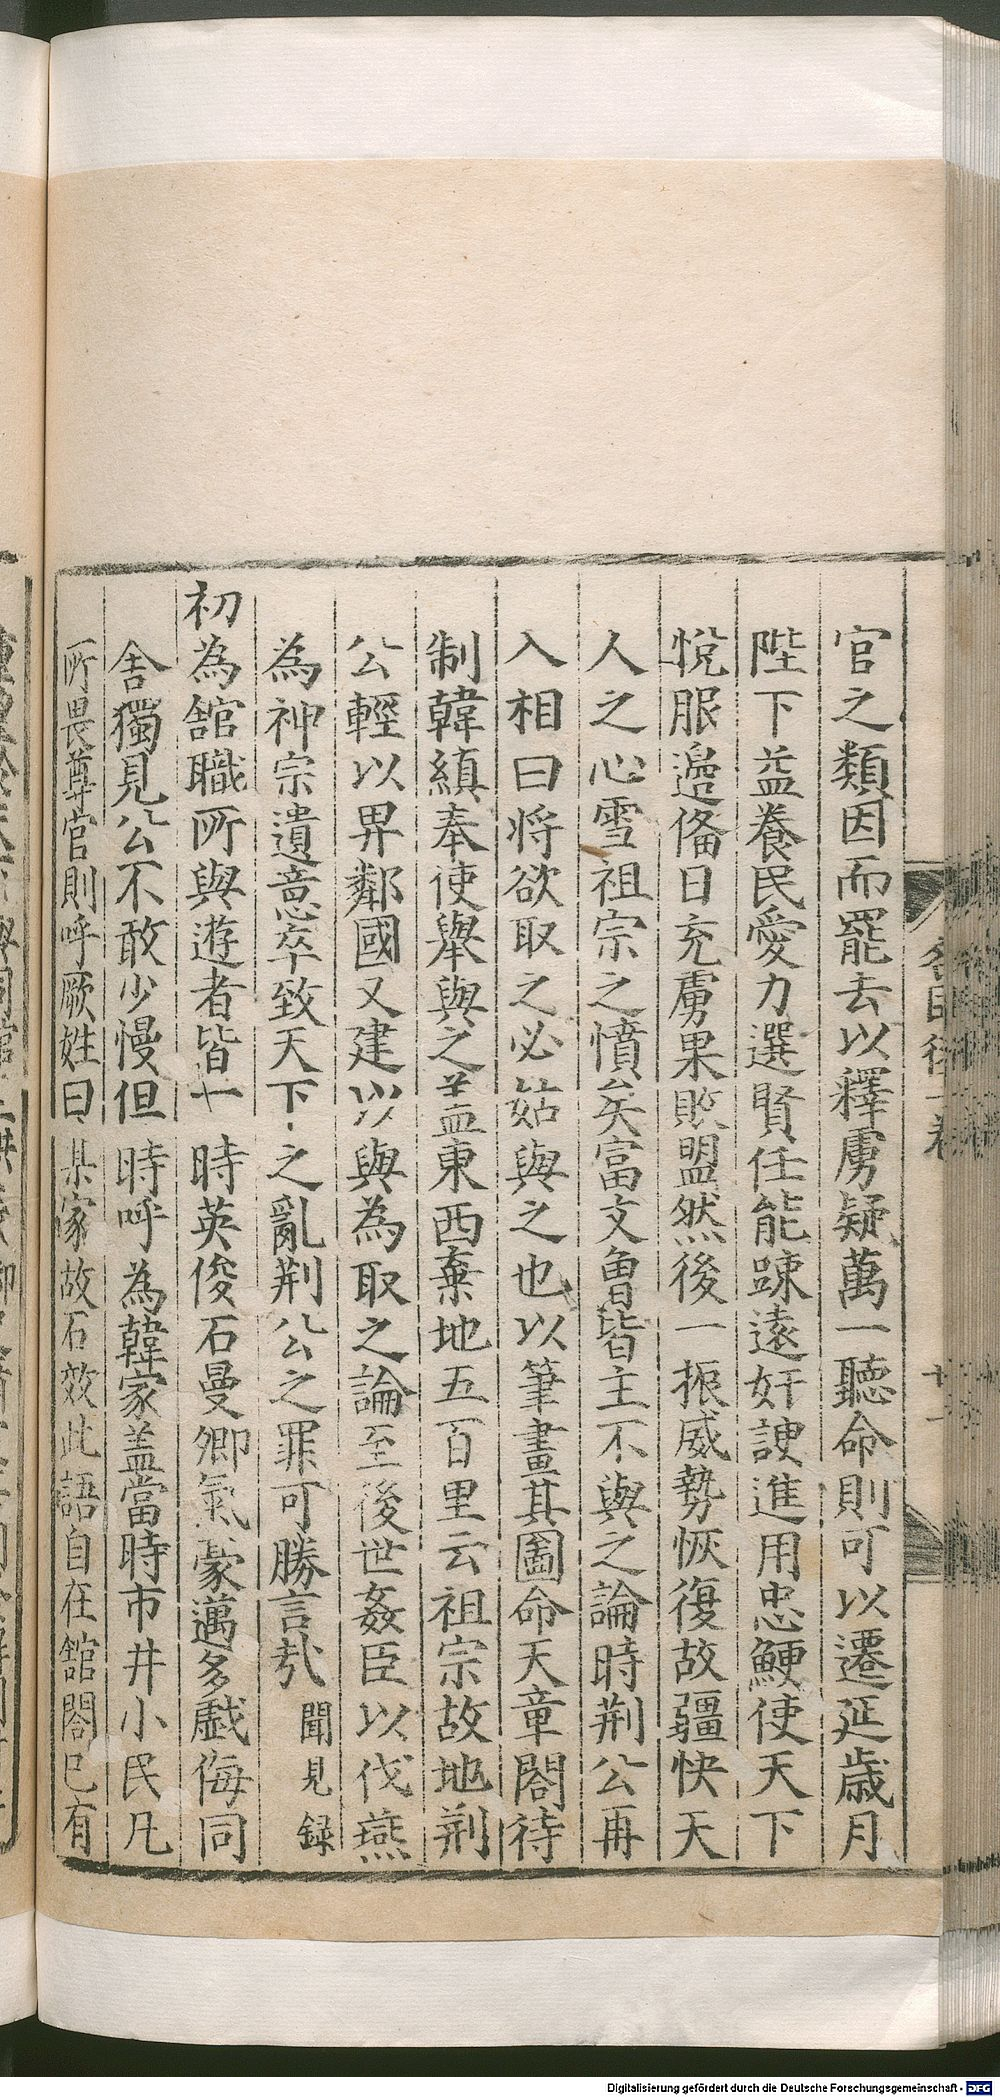 官之類因而罷去以釋虜疑萬一聽命則可以遷延歲月
陛下益養民愛力選賢任能踈遠奸諛進用忠鯁使天下
悅服邊俻日充虜果敗盟然後一振威勢恢復故疆快天
人之心雪祖宗之憤矣富文魯皆主不與之論時荆公再
入相曰将欲取之必姑與之也以筆畫其圖命天章閣待
制韓縝奉使舉與之盖東西棄地五百里云祖宗故地荆
公輕以畀鄰國又建以與為取之論至後世姦臣以伐燕
為神宗遺意卒致天下之亂荆公之罪可勝言㢤 聞見録
初為舘職所與遊者皆一時英俊石曼卿氣豪邁多戯侮同
舎獨見公不敢少慢但時呼為韓家盖當時市井小民凡
所畏尊官則呼厥姓曰某家故石效此語自在舘閣已有
Digitalisierung gefördert durch die Deutsche Forschungsgemeinschaft - DFG